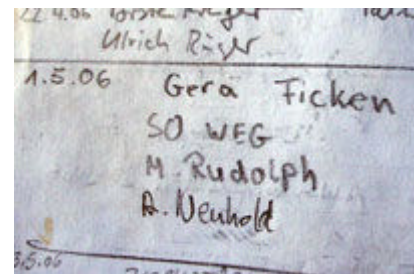 22.4.06
Ulrich Rüger
1.5.06 Gera Ficken
SO WEG
M. Rudolph
A. Neuhold
3.5.06